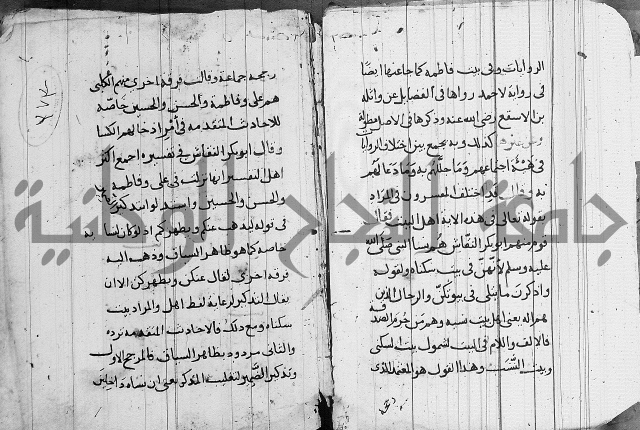 الروايات وفي بيت فاطمه كما جاء عنها ايضا
في رواية لاحمد رواها في الفضايل عن واثله
بن الاسقع رضي الله عنه وذكرها في الاصابه
كذلك وبه يجمع بين اختلاف الروايات
في هيئة اجتماعهم وما جللهم به وما دعا لهم
به وقد اختلف المفسرون في المراد
بقوله تعالى في هذه الاية اهل البيت فقال
قوم منهم ابو بكر النقاش هم نسا النبي صلى الله
عليه وسلم لانهن في بيت سكناه ولقوله
واذكرن ما يتلى في بيوتكن والرجال الذين
هم اله يعني اهل بيت نسبه وهم من حرم الصدقه
فالالف واللام في البيت لشمول بيت السكنى
وبيت النسب وهذا القول هو المعتمد الذي
رجحه جماعة وقالت فرقه اخرى منهم الكلبي
هم علي وفاطمة والحسن والحسين خاصه
للاحاديث المتقدمه في ادخالهم الكسا
وقال ابو بكر النقاش في تفسيره اجمع اكثر
اهل التفسير انها نزلت في علي وفاطمه
والحسن والحسين
في قوله ليذهب عنكم ويطهركم اذ لو كان لنسا
خاصه كما هو ظاهر السياق وذهب اليه
فرقه اخرى لقال عنكن ويطهركن الا ان
يقال التذكير لرعاية لفظ اهل والمراد بيت
سكناه ومع ذلك فالاحاديث المتقدمه ترده
والثاني مردود بظاهر السياق فالمرجح الاول
وتذكير الضمير لتغليب المذكر
جامعة النجاح الوطنية